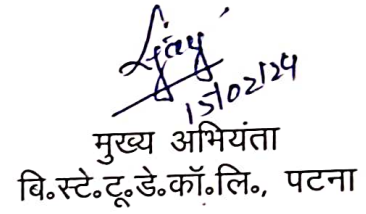 15/02/24
मुख्य अभियंता
बि॰स्टे॰टू॰डे॰कॉ॰लि॰, पटना